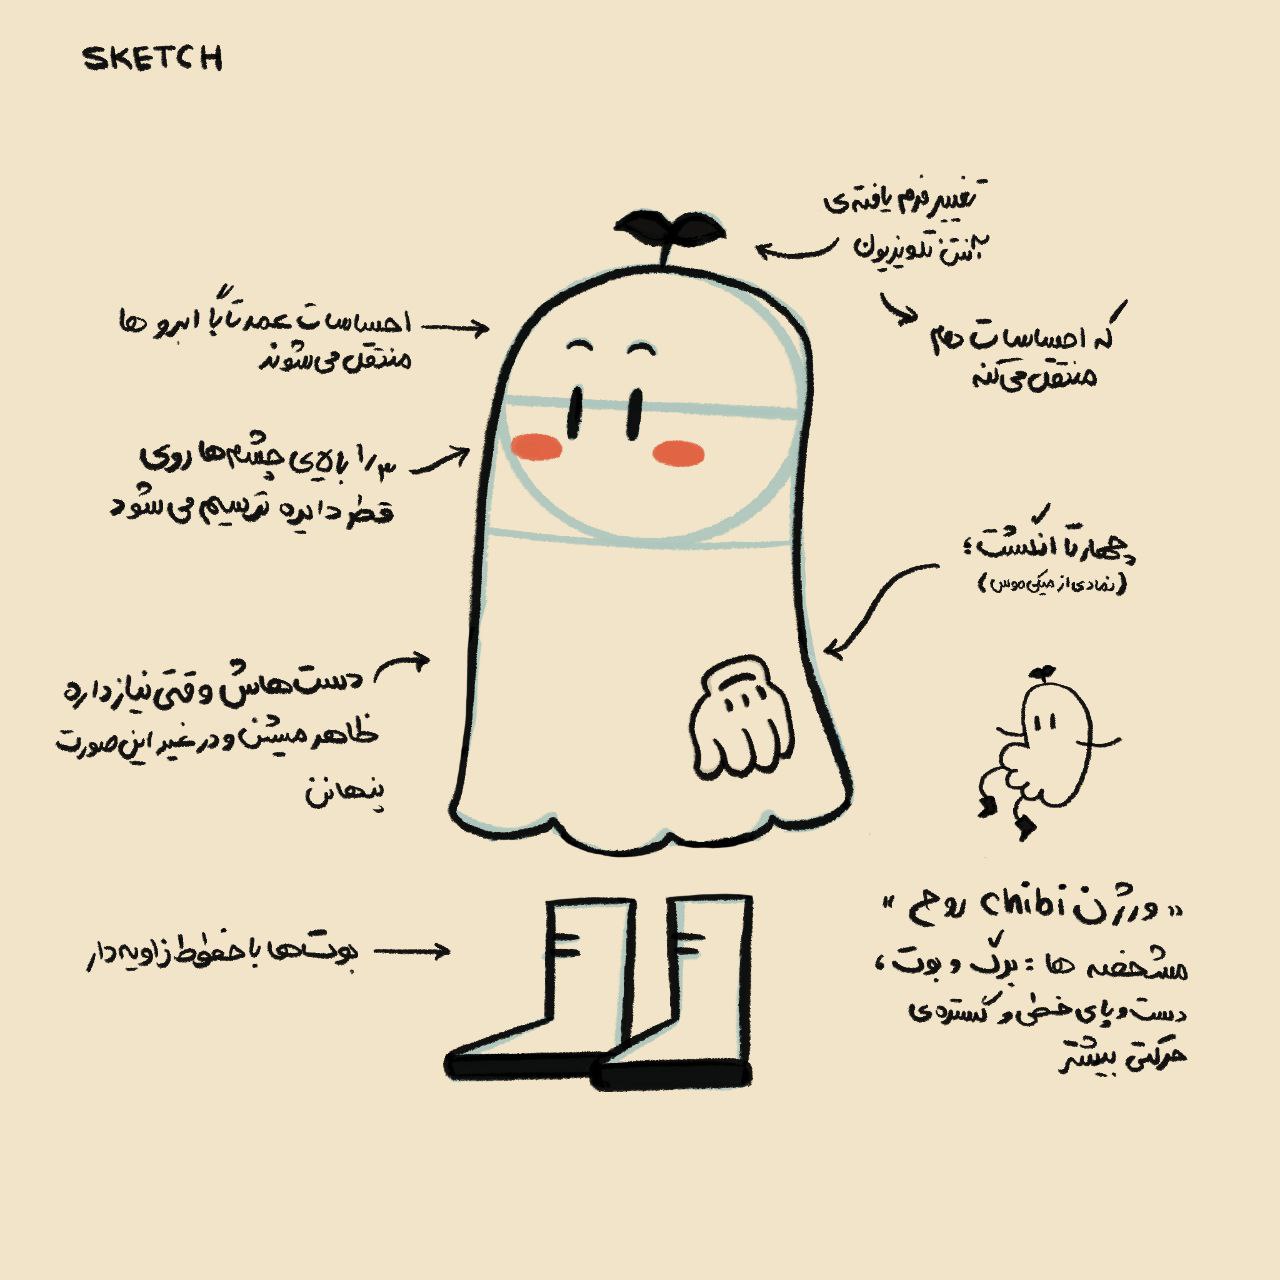 SKETCH
تغییر فرم یافته‌ی
آنتن تلویزیون
که احساسات هم
منتقل می‌کنه
احساسات عمدتاً با ابرو ها
منتقل می‌شوند
۱/۳ بالای چشم‌ها روی
قطر دایره ترسیم می‌شود
چهارتا انگشت؛
(نمادی از میکی موس)
دست‌هاش وقتی نیاز داره
ظاهر میشن و در غیر این صورت
پنهانن
بوت‌ها با خطوط زاویه‌دار
«ورژن chibi روح»
مشخصه ها : برگ و بوت ،
دست و پای خطی و گستره‌ی
حرکتی بیشتر